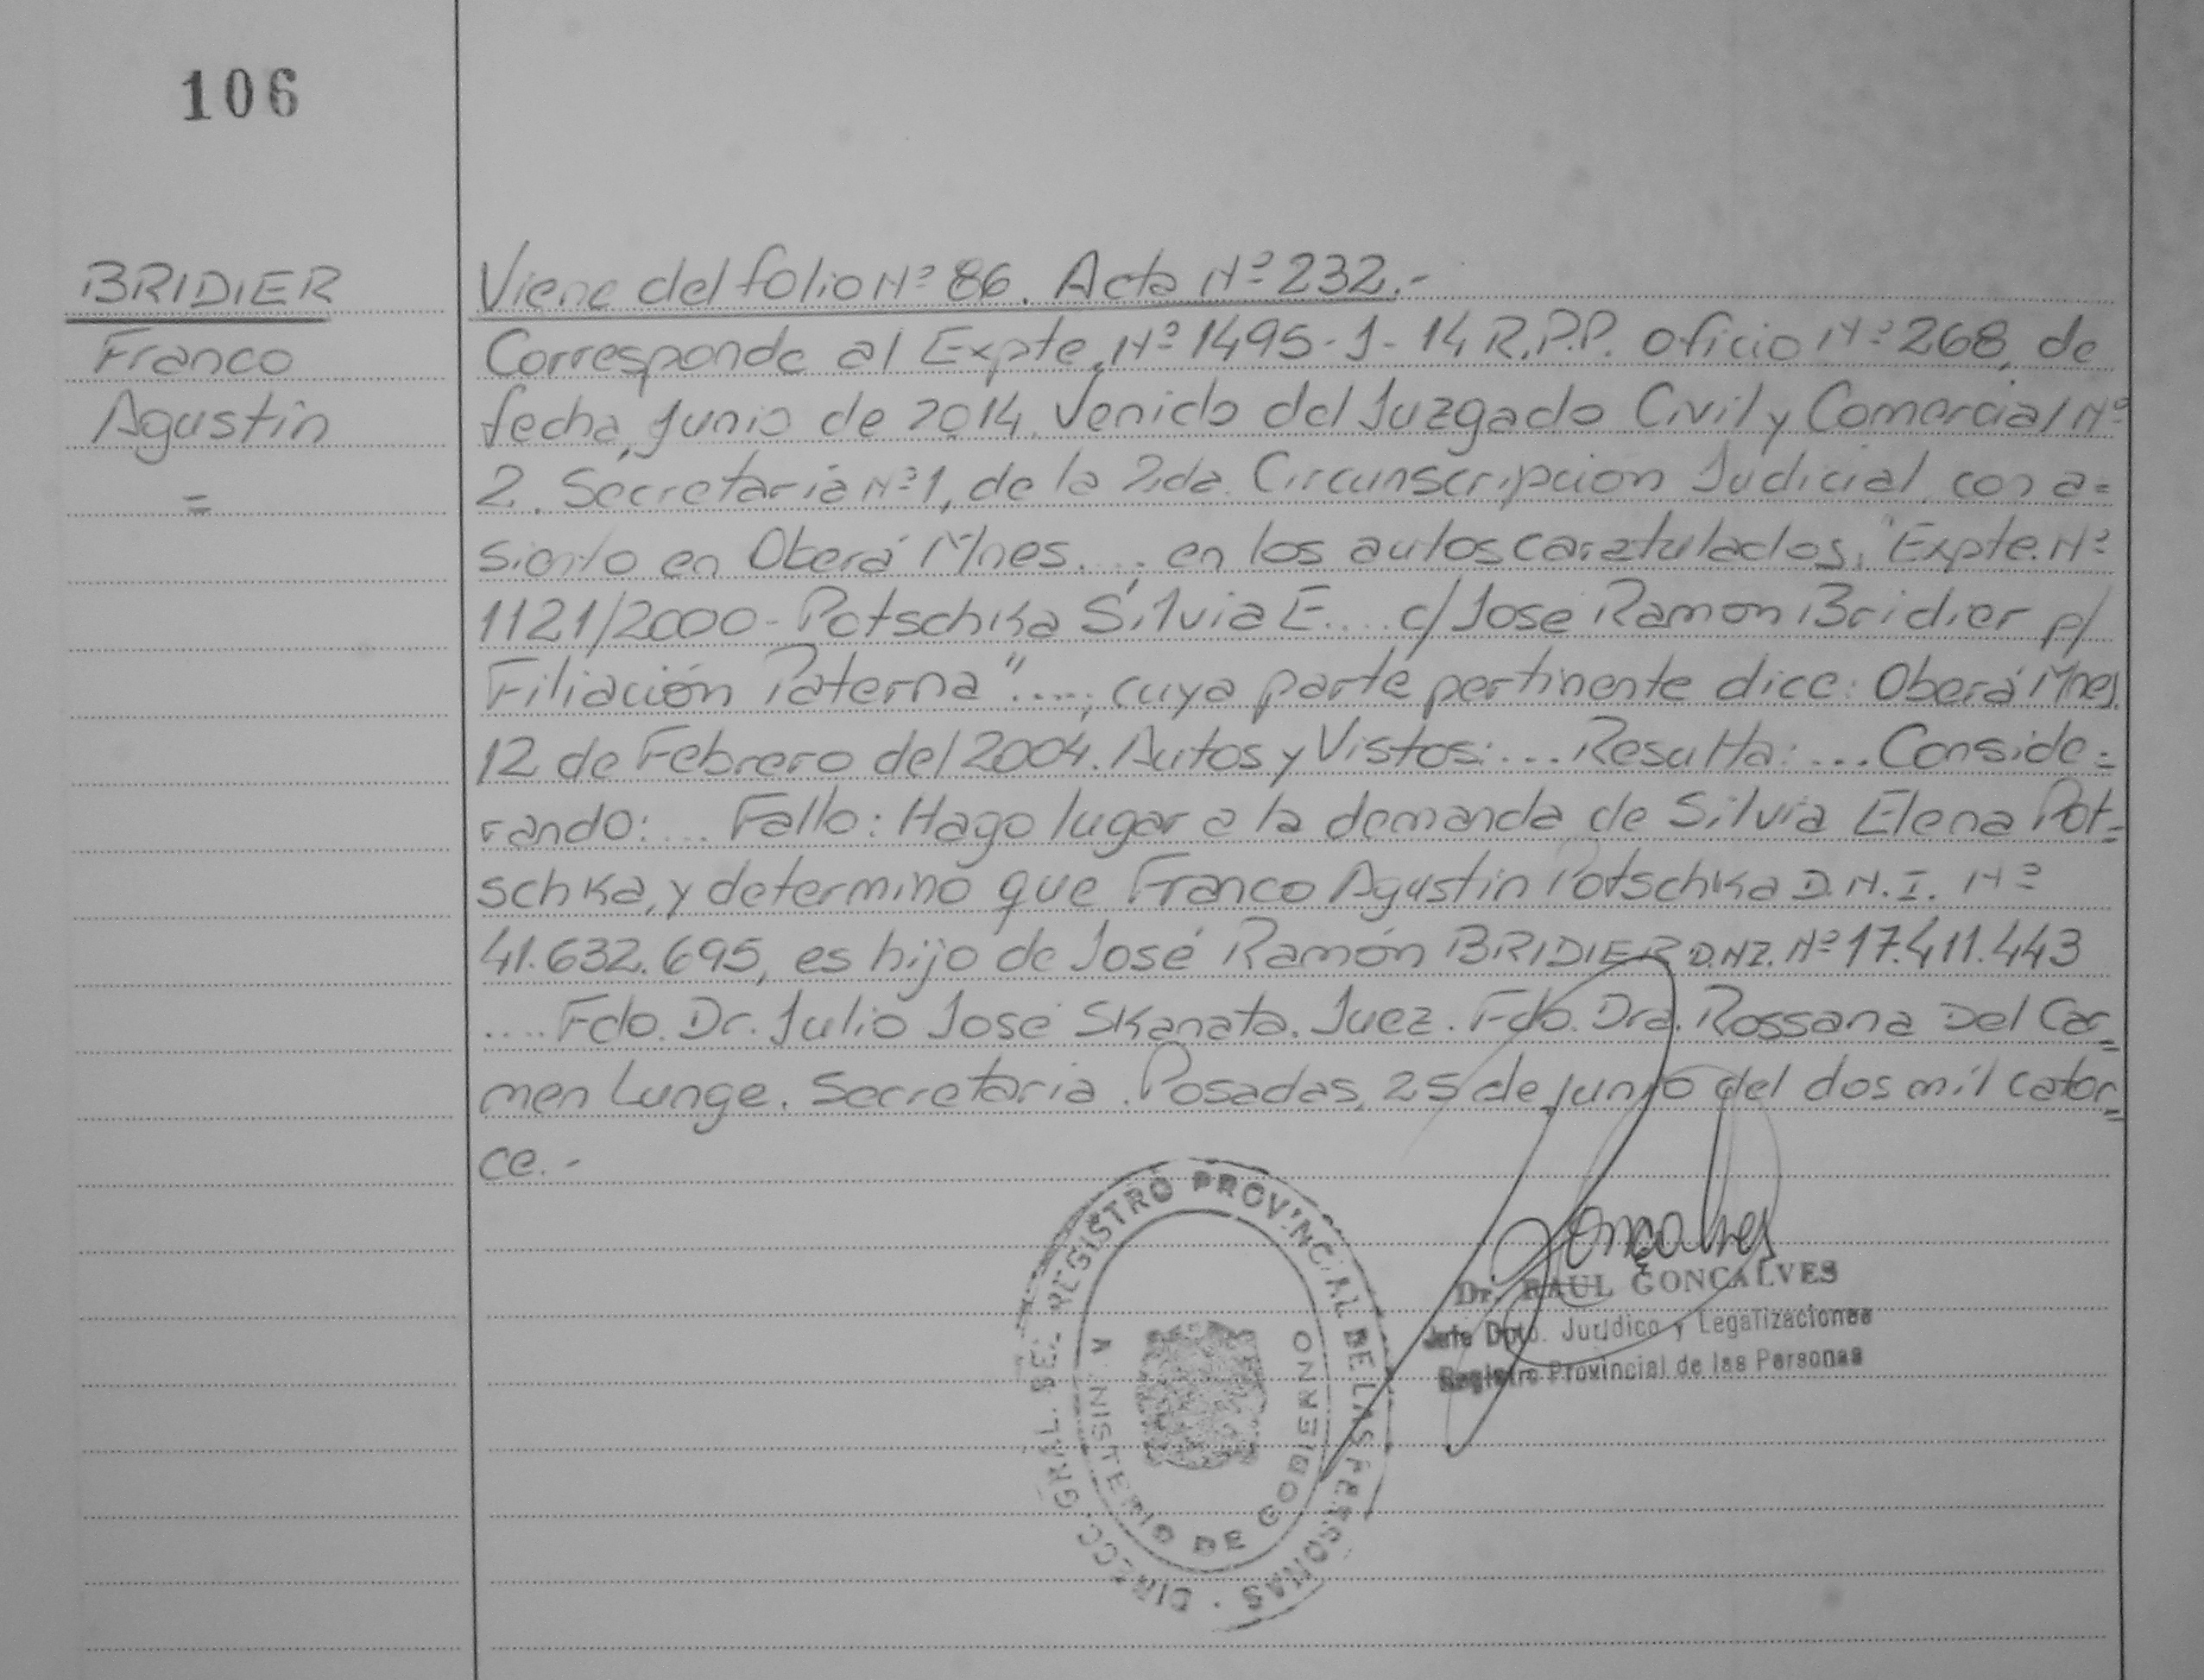 106
BRIDIER
Franco
Agustín
=
Viene del folio Nº 86. Acta Nº 232.-
Corresponde al Expte. Nº 1495-J-14 R.P.P. oficio Nº 268, de
fecha, junio de 2014. Venido del Juzgado Civil y Comercial Nº
2. Secretaria Nº 1, de la 2da. Circunscripción Judicial con a=
siento en Oberá Mnes...; en los autos caratulados; "Expte. Nº
1121/2000 - Potschka Silvia E.... c/ José Ramón Bridier p/
Filiación Paterna"....., cuya parte pertinente dice: Oberá Mnes,
12 de Febrero del 2004. Autos y Vistos:... Resulta:... Conside=
rando:... Fallo: Hago lugar a la demanda de Silvia Elena Pot=
schka, y determinó que Franco Agustín Potschka D.N.I. Nº
41.632.695, es hijo de José Ramón BRIDIER D.N.I. Nº 17.411.443
.... Fdo. Dr. Julio José Skanata. Juez. Fdo. Dra. Rossana Del Car=
men Lunge. Secretaria. Posadas, 25 de junio del dos mil cator=
ce.-
Goncalves
Dr. RAUL GONCALVES
Jefe Dpto. Jurídico y Legalizaciones
Registro Provincial de las Personas
DIRECC. GRAL. DEL REGISTRO PROVINCIAL DE LAS PERSONAS
MINISTERIO DE GOBIERNO